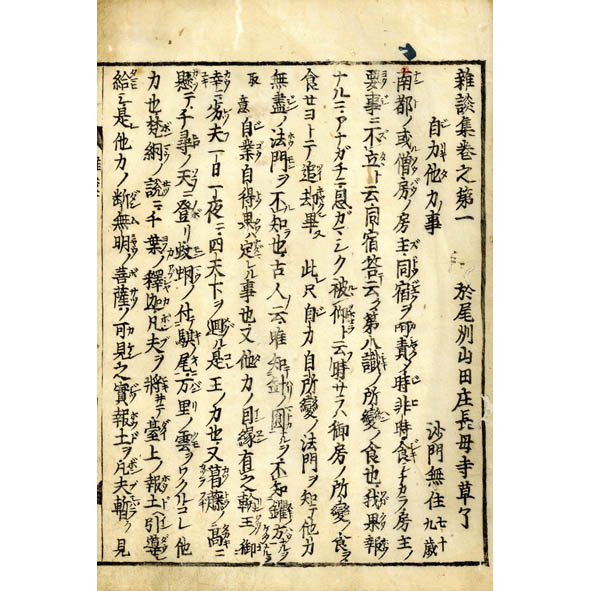 雜談集卷之第一
自力他力事
於尾州山田庄長母寺草了
沙門無住 七十九歲
南都ノ或僧房ノ房主同宿ヲ呵責ノ時非時食テカラ房主ノ
要事ニ不立ト云同宿答云ク第八識ノ所變ノ食也我果報
ナルニアナガチニ恩ガマシク被仰ト云時サラハ御房ノ所變ノ食ヲ
食セヨトテ追却畢 此尺自力自所變ノ法門ヲ知テ他力
無盡ノ法門ヲ不知也古人云唯知針ノ圓ヲ不知鑵方
取意自業自得果ハ定レル事也又他力ノ因緣有之輪王御
幸ニ劣夫一日一夜ニ四天下ヲ廻ル是王ノ力也又葛藤高
懸テ千尋ノ天ニ登リ蚊蚋ノ付駃尾万里ノ雲ヲワクルコレ他
力也梵網ノ說ニ千葉ノ釋迦凡夫ヲ將サテ臺上ノ報土ヘ引導
給ヘ是他力ノ斷無明ノ菩薩ノ可見之實報土ヲ凡夫暫ク見